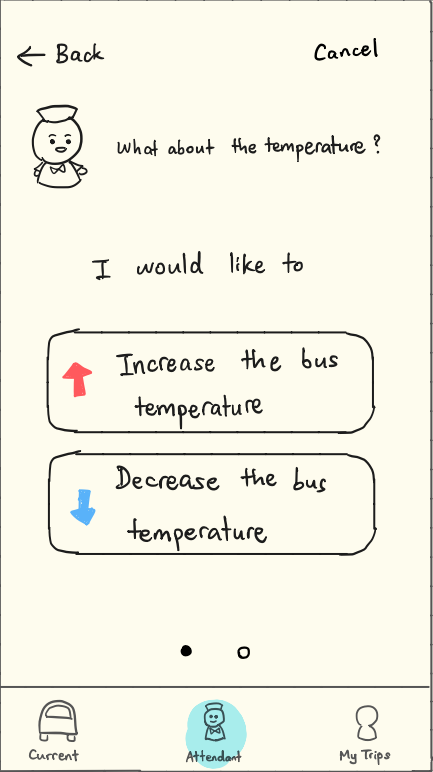 ← Back
Cancel
What about the temperature?
I would like to
Increase the bus
temperature
Decrease the bus
temperature
Current
Attendant
My Trips